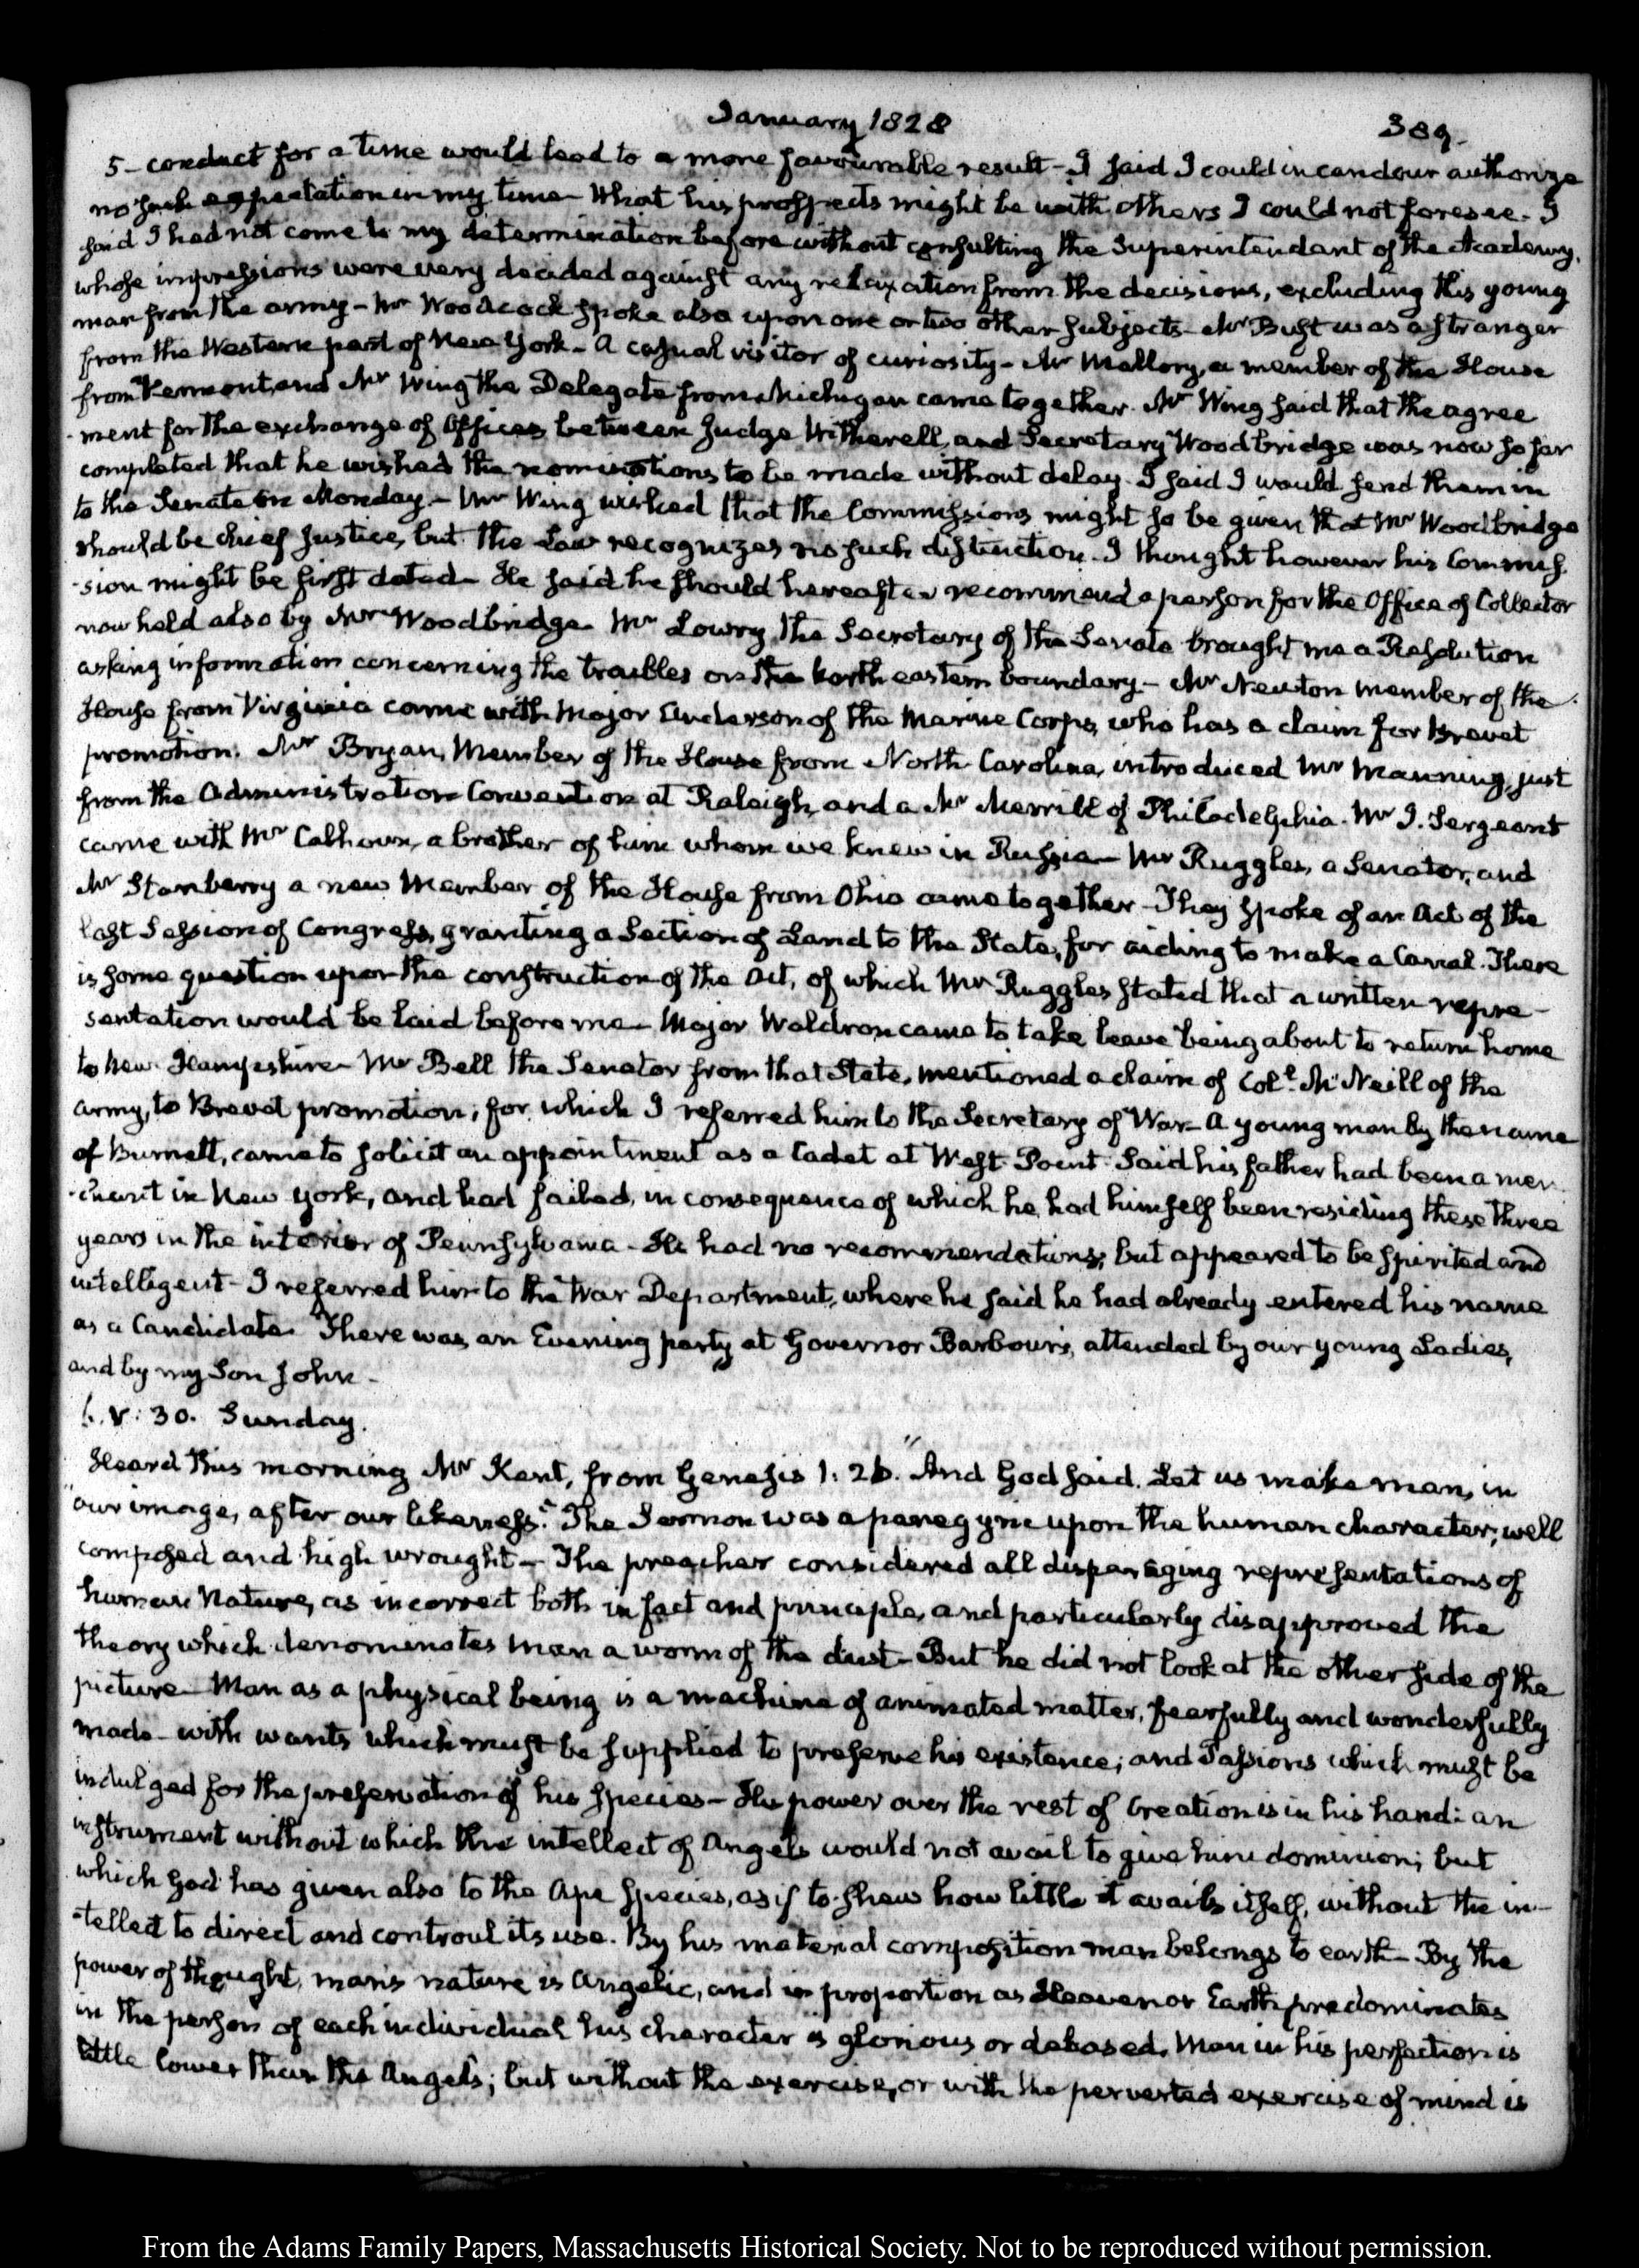 January 1828
389.
5 - conduct for a time would lead to a more favourable result - I said I could in candour authorize
no such expectation in my time - What his prospects might be with others I could not foresee - I
said I had not come to my determination before without consulting the Superintendant of the Academy,
whose impressions were very decided against any relaxation from the decisions, excluding this young
man from the army - Mr Woodcock spoke also upon one or two other subjects - Mr Bust was a stranger
from the Western part of New York - A casual visitor of curiosity - Mr Mallory, a member of the House
from Vermont, and Mr Wing the Delegate from Michigan came together. Mr Wing said that the agree
-ment for the exchange of Offices between Judge Witherell, and Secretary Woodbridge was now so far
completed that he wished the nominations to be made without delay. I said I would send them in
to the Senate on Monday - Mr Wing wished that the Commissions might so be given that Mr Woodbridge
should be chief Justice, but the Law recognizes no such distinction. I thought however his Commis
-sion might be first dated - He said he should hereafter recommend a person for the Office of Collector
now held also by Mr Woodbridge - Mr Lowry the Secretary of the Senate brought me a Resolution
asking information concerning the troubles on the North eastern boundary - Mr Newton member of the
House from Virginia came with Major Anderson of the Marine Corps, who has a claim for Brevet
promotion. Mr Bryan, Member of the House from North Carolina, introduced Mr Manning, just
from the Administration Convention at Raleigh, and a Mr Merrill of Philadelphia. Mr J. Sergeant
came with Mr Calhoun, a brother of him whom we knew in Russia - Mr Ruggles, a Senator, and
Mr Stanberry a new Member of the House from Ohio came together - They spoke of an Act of the
last Session of Congress, granting a Section of Land to the State, for aiding to make a Canal. There
is some question upon the construction of the Act, of which Mr Ruggles stated that a written repre-
sentation would be laid before me - Major Waldron came to take leave being about to return home
to New Hampshire - Mr Bell the Senator from that State, mentioned a claim of Col.l McNeill of the
army, to Brevet promotion; for which I referred him to the Secretary of War - A young man by the name
of Burnett, came to solicit an appointment as a Cadet at West-Point. Said his father had been a mer
-chant in New York, and had failed, in consequence of which he had himself been residing these three
years in the interior of Pennsylvania - He had no recommendations; but appeared to be spirited and
intelligent - I referred him to the War Department, where he said he had already entered his name
as a Candidate. There was an Evening party at Governor Barbour's, attended by our young Ladies,
and by my Son John -
6. V: 30. Sunday.
Heard this morning Mr Kent, from Genesis 1: 26. "And God said. Let us make man, in
"our image, after our likeness." The Sermon was a panegyric upon the human character; well
composed and high wrought - The preacher considered all disparaging representations of
human Nature, as incorrect both in fact and principle, and particularly disapproved the
theory which denominates man a worm of the dust - But he did not look at the other side of the
picture - Man as a physical being is a machine of animated matter, fearfully and wonderfully
made - with wants which must be supplied to preserve his existence; and Passions which must be
indulged for the preservation of his species - His power over the rest of Creation is in his hand: an
instrument without which the intellect of Angels would not avail to give him dominion; but
which God has given also to the Ape species, as if to shew how little it avails itself, without the in-
-tellect to direct and controul its use. By his material composition man belongs to earth - By the
power of thought, man's nature is Angelic, and in proportion as Heaven or Earth predominates
in the person of each individual his character is glorious or debased. Man in his perfection is
little lower than the Angels; but without the exercise, or with the perverted exercise of mind is
From the Adams Family Papers, Massachusetts Historical Society. Not to be reproduced without permission.